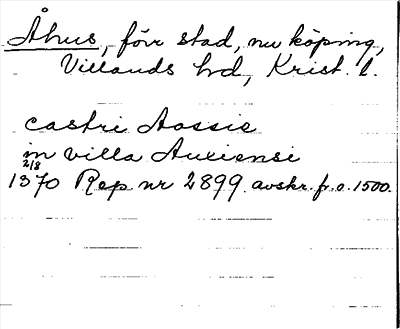 Åhus, förr stad, nu köping,
Villands hd, Krist. l.
castri Aossie
in villa Auxiensi
2/8
1370 Rep nr 2899. avskr. fr. o. 1500.